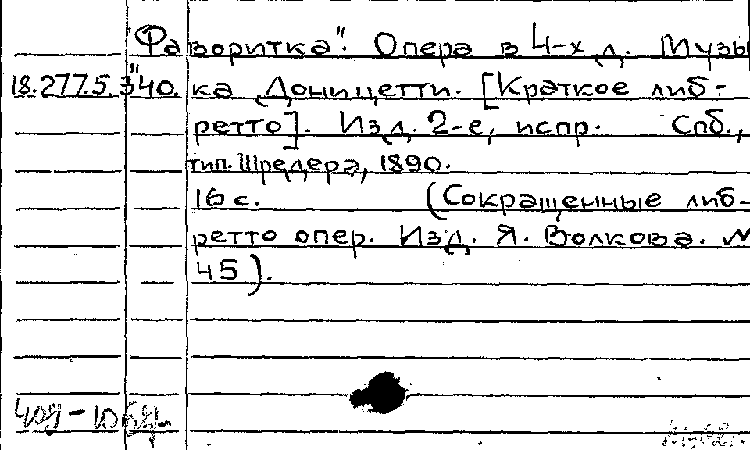 "Фаворитка". Опера в 4-х д. Музы
18.277.5.340. ка Доницетти. [Краткое либ-
ретто]. Изд. 2-е, испр. Спб.,
тип. Шредера, 1890.
16 с. (Сокращенные либ-
ретто опер. Изд. Я. Волкова. №
45).